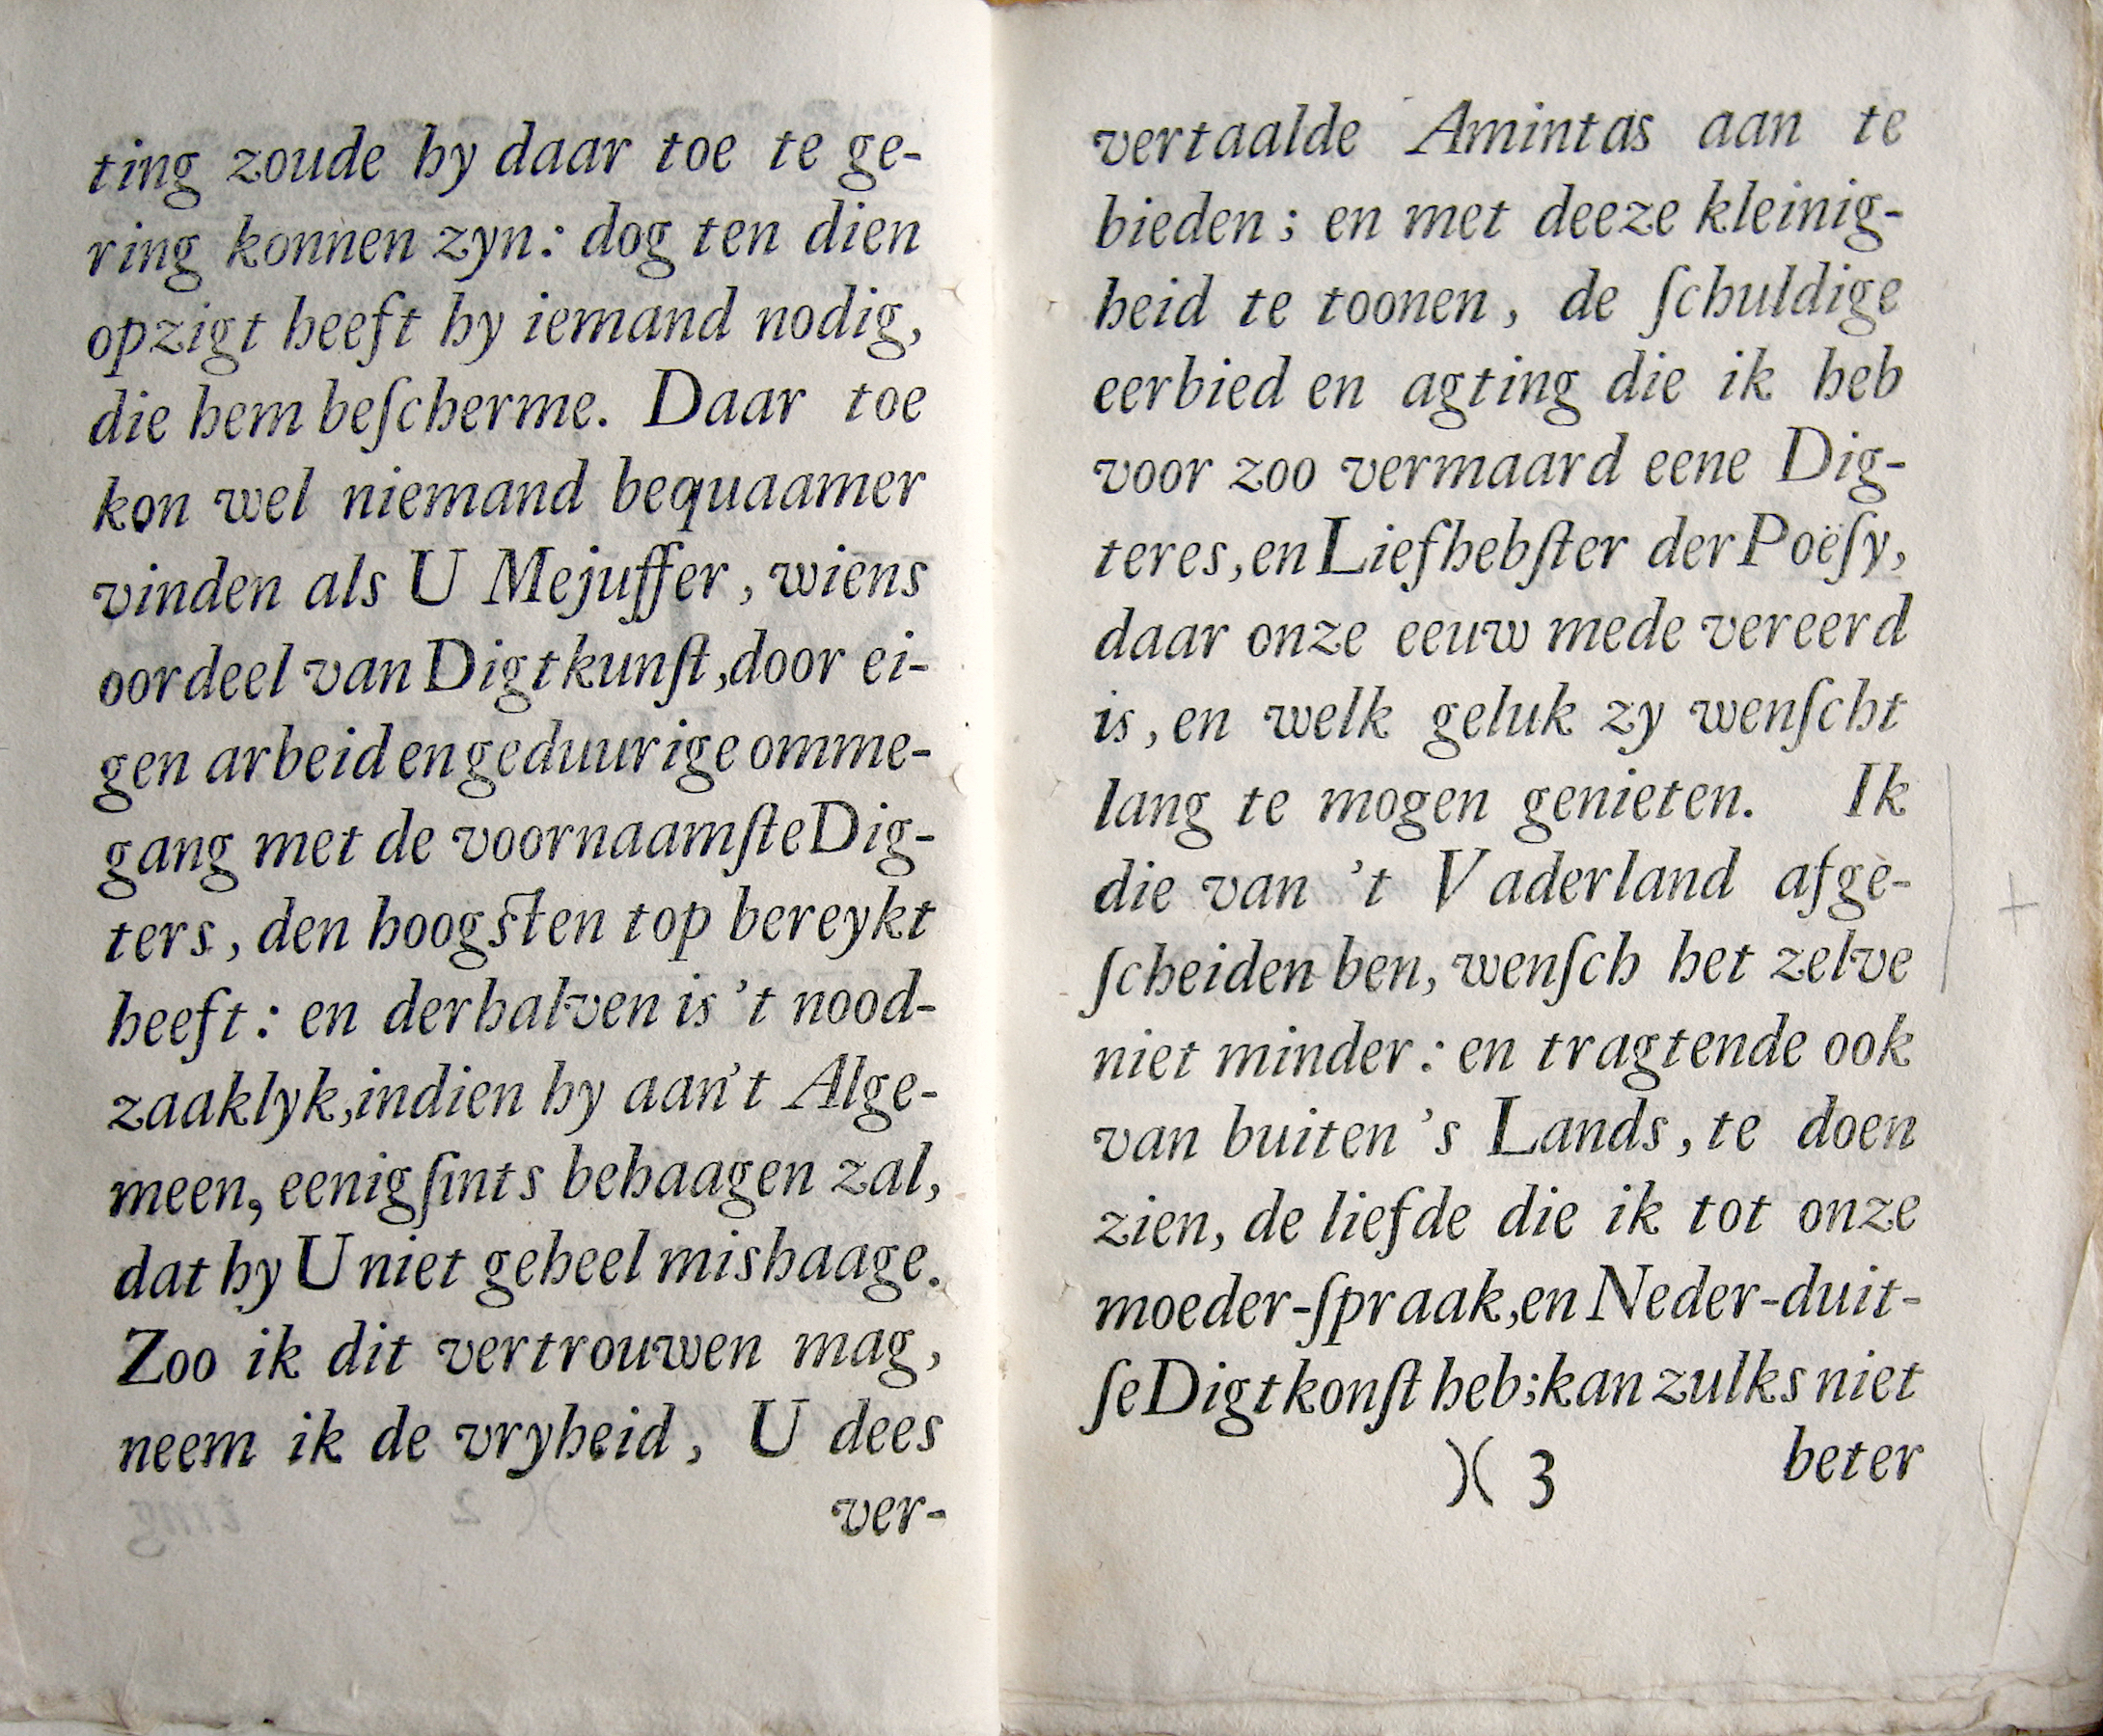 ting zoude hy daar toe te ge-
ring konnen zyn: dog ten dien
opzigt heeft hy iemand nodig,
die hem beſcherme. Daar toe
kon wel niemand bequaamer
vinden als U Mejuffer, wiens
oordeel van Digtkunſt, door ei-
gen arbeid en geduurige omme-
gang met de voornaamſte Dig-
ters, den hoogſten top bereykt
heeft: en derhalven is 't nood-
zaaklyk, indien hy aan 't Alge-
meen, eenigſints behaagen zal,
dat hy U niet geheel mishaage.
Zoo ik dit vertrouwen mag,
neem ik de vryheid, U dees
ver-
vertaalde Amintas aan te
bieden; en met deeze kleinig-
heid te toonen, de ſchuldige
eerbied en agting die ik heb
voor zoo vermaard eene Dig-
teres, en Liefhebſter der Poëſy,
daar onze eeuw mede vereerd
is, en welk geluk zy wenſcht
lang te mogen genieten. Ik
die van 't Vaderland afge-
ſcheiden ben, wenſch het zelve
niet minder: en tragtende ook
van buiten 's Lands, te doen
zien, de liefde die ik tot onze
moeder-ſpraak, en Neder-duit-
ſe Digtkonſt heb; kan zulks niet
)( 3 beter